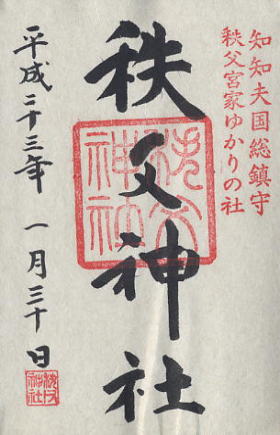 知知夫国総鎮守
秩父宮家ゆかりの社
秩父神社
秩父神社
平成二十三年 一月三十日
秩父神社